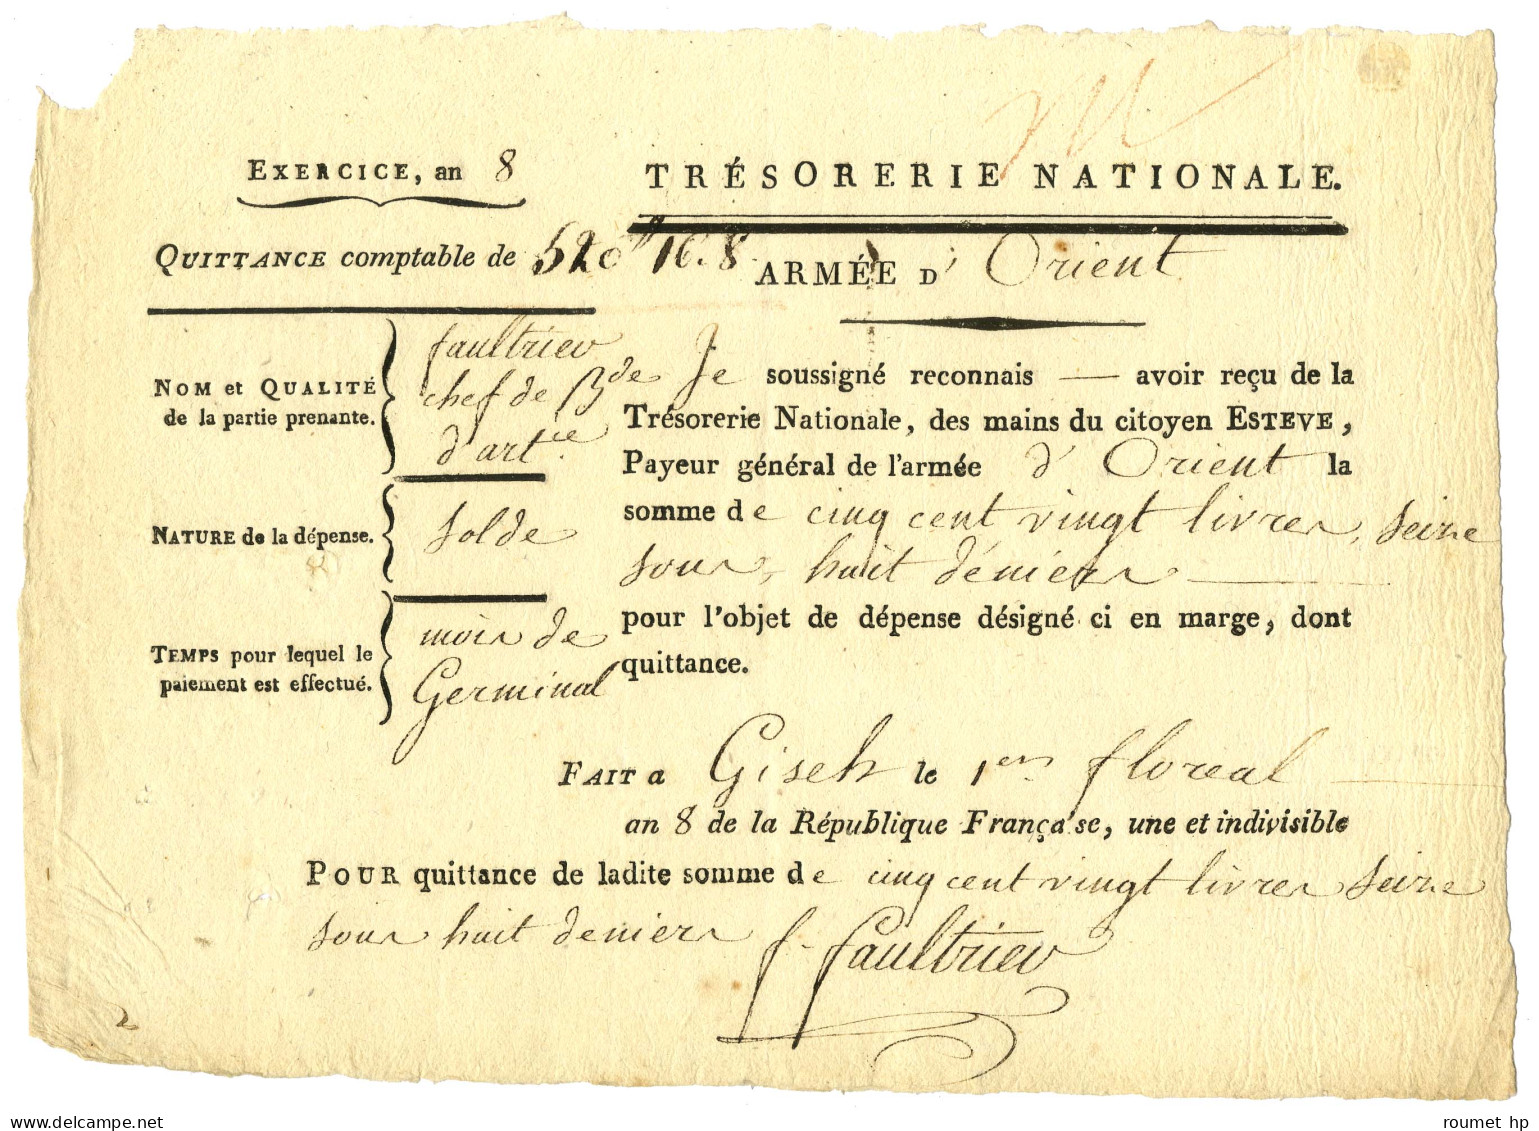 EXERCICE, an 8
TRÉSORERIE NATIONALE.
QUITTANCE comptable de 520# 16. 8.
ARMÉE D' Orient
NOM et QUALITÉ
de la partie prenante.
faultrier
chef de Bde
d'artie
NATURE de la dépense.
solde
TEMPS pour lequel le
paiement est effectué.
mois de
Germinal
Je soussigné reconnais — avoir reçu de la
Trésorerie Nationale, des mains du citoyen ESTEVE,
Payeur général de l'armée d'Orient la
somme de cinq cent vingt livres, seize
sous, huit déniers —
pour l'objet de dépense désigné ci en marge, dont
quittance.
FAIT a Giseh le 1er floreal —
an 8 de la République França'se, une et indivisible
POUR quittance de ladite somme de cinq cent vingt livres seize
sous huit deniers
f. faultrier
2
roumet hp